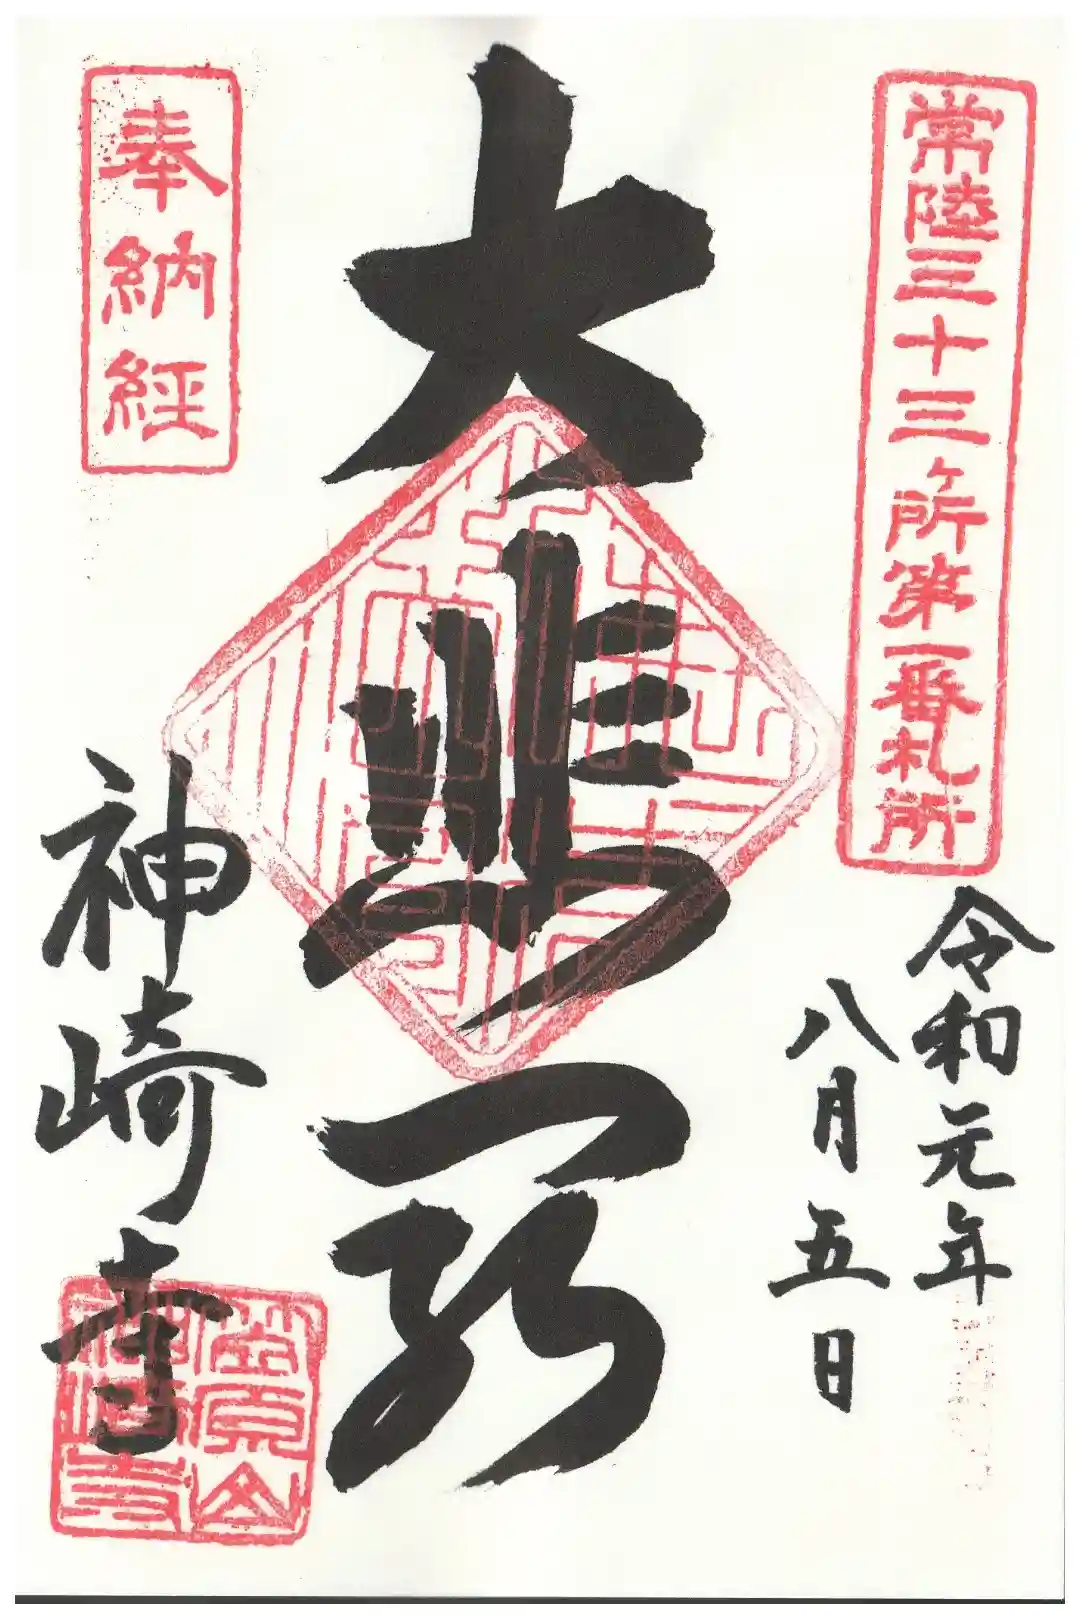 常陸三十三ヶ所第一番札所
令和元年
八月五日
大悲殿
奉納経
神崎寺